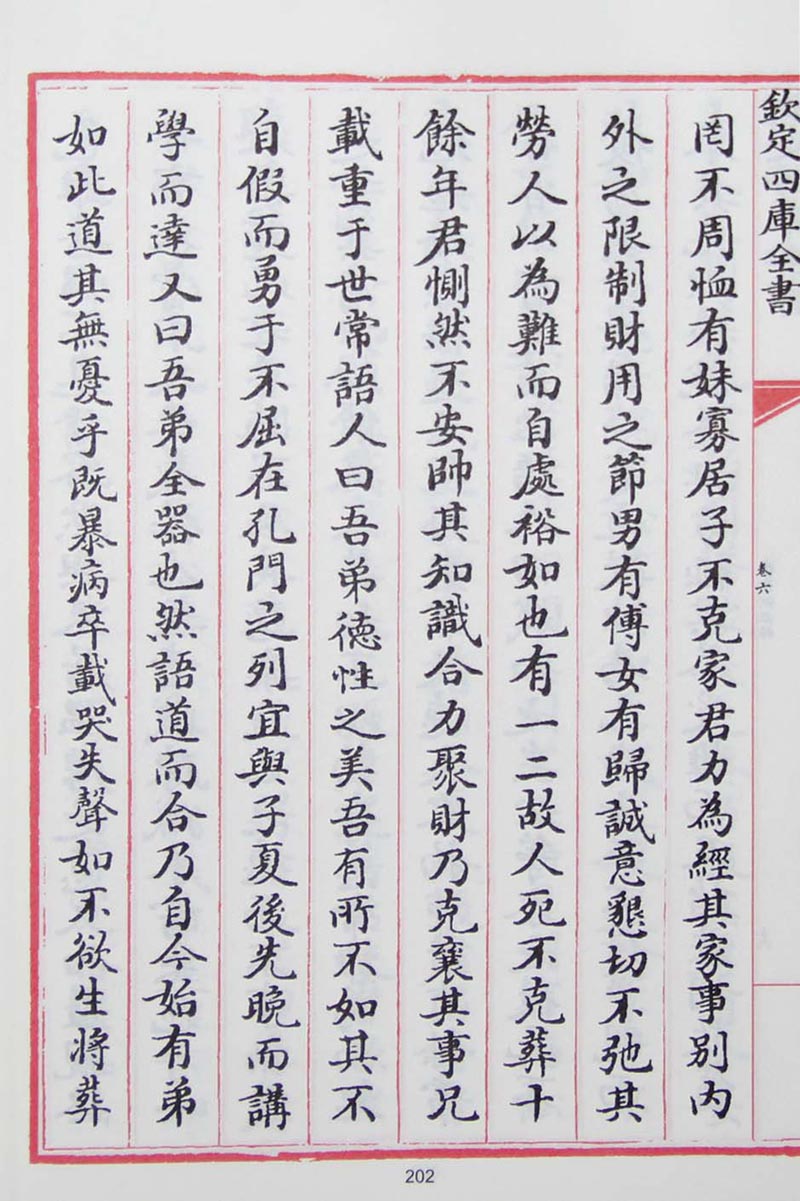 欽定四庫全書
卷六
罔不周恤有妹寡居子不克家君力為經其家事别内
外之限制財用之節男有傅女有歸誠意懇切不弛其
勞人以為難而自處裕如也有一二故人死不克葬十
餘年君惻然不安帥其知識合力聚財乃克襄其事兄
載重于世常語人曰吾弟徳性之美吾有所不如其不
自假而勇于不屈在孔門之列宜與子夏後先晚而講
學而達又曰吾弟全器也然語道而合乃自今始有弟
如此道其無憂乎既暴病卒載哭失聲如不欲生將葬
202